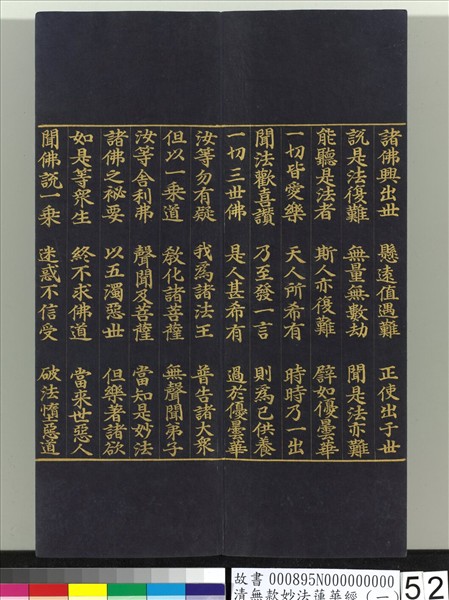 諸佛興出世 懸遠值遇難 正使出于世
說是法復難 無量無數劫 聞是法亦難
能聽是法者 斯人亦復難 譬如優曇華
一切皆愛樂 天人所希有 時時乃一出
聞法歡喜讚 乃至發一言 則為已供養
一切三世佛 是人甚希有 過於優曇華
汝等勿有疑 我為諸法王 普告諸大衆
但以一乘道 教化諸菩薩 無聲聞弟子
汝等舍利弗 聲聞及菩薩 當知是妙法
諸佛之秘要 以五濁惡世 但樂著諸欲
如是等衆生 終不求佛道 當來世惡人
聞佛說一乘 迷惑不信受 破法墮惡道
故書 000895N000000000
清無款妙法蓮華經（一）
52